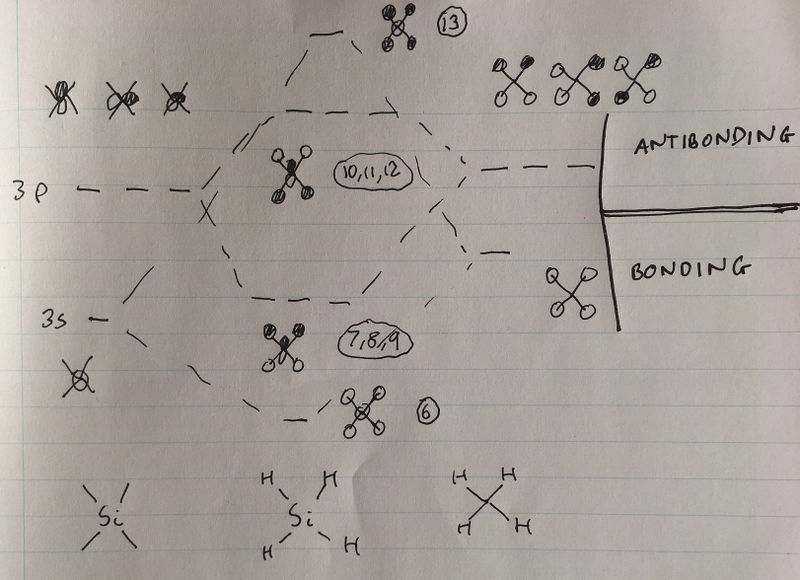 13
ANTIBONDING
10,11,12
3p
BONDING
3s
7,8,9
6
H H H H
Si Si
H H H H